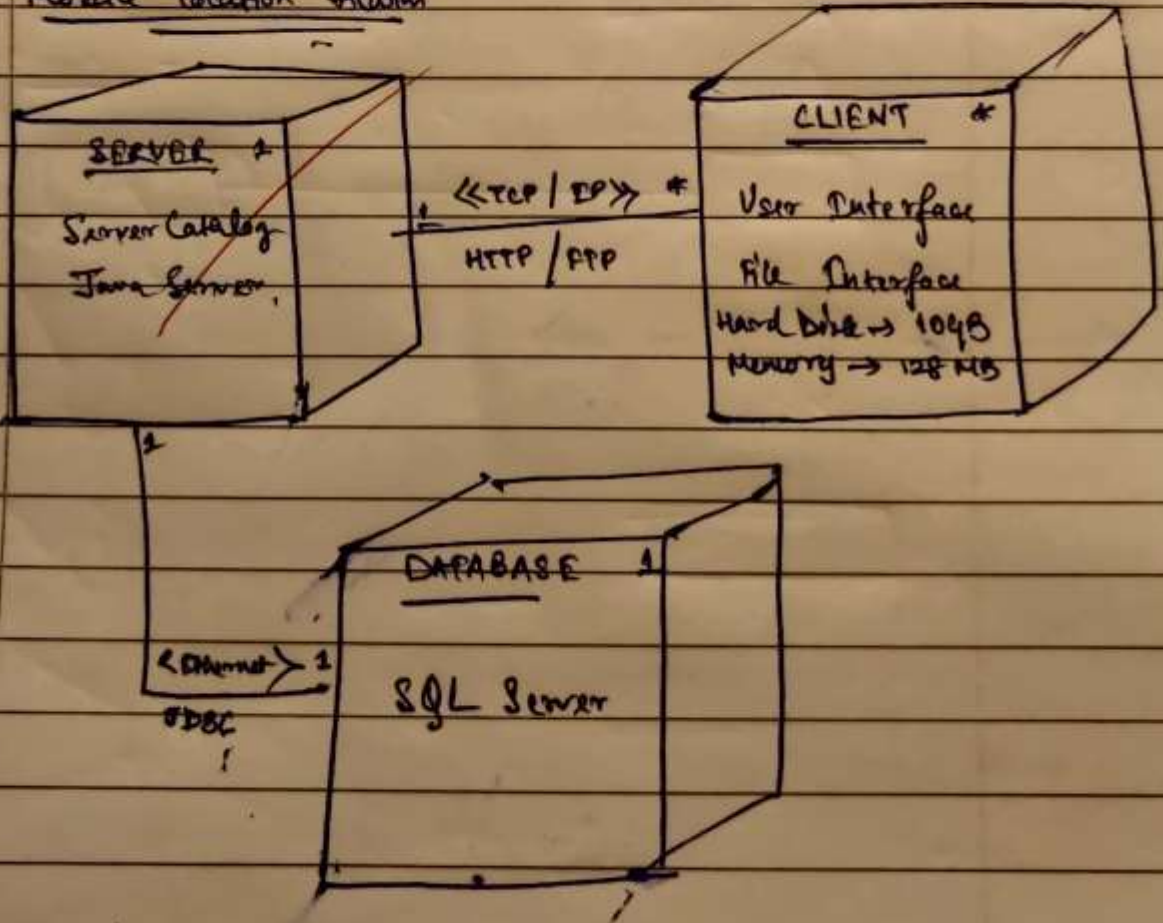 SERVER 1
Server Catalog
Java Server
1
<<TCP / IP>> *
HTTP / FTP
CLIENT *
User Interface
File Interface
Hard Disk → 10GB
Memory → 128 MB
1
<Ethernet> 1
DATABASE 1
SQL Server